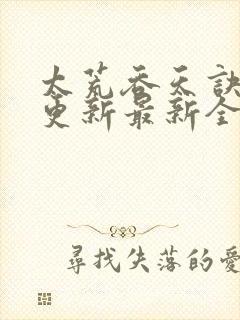 太荒吞天訣
更新最新全
尋找失落的愛